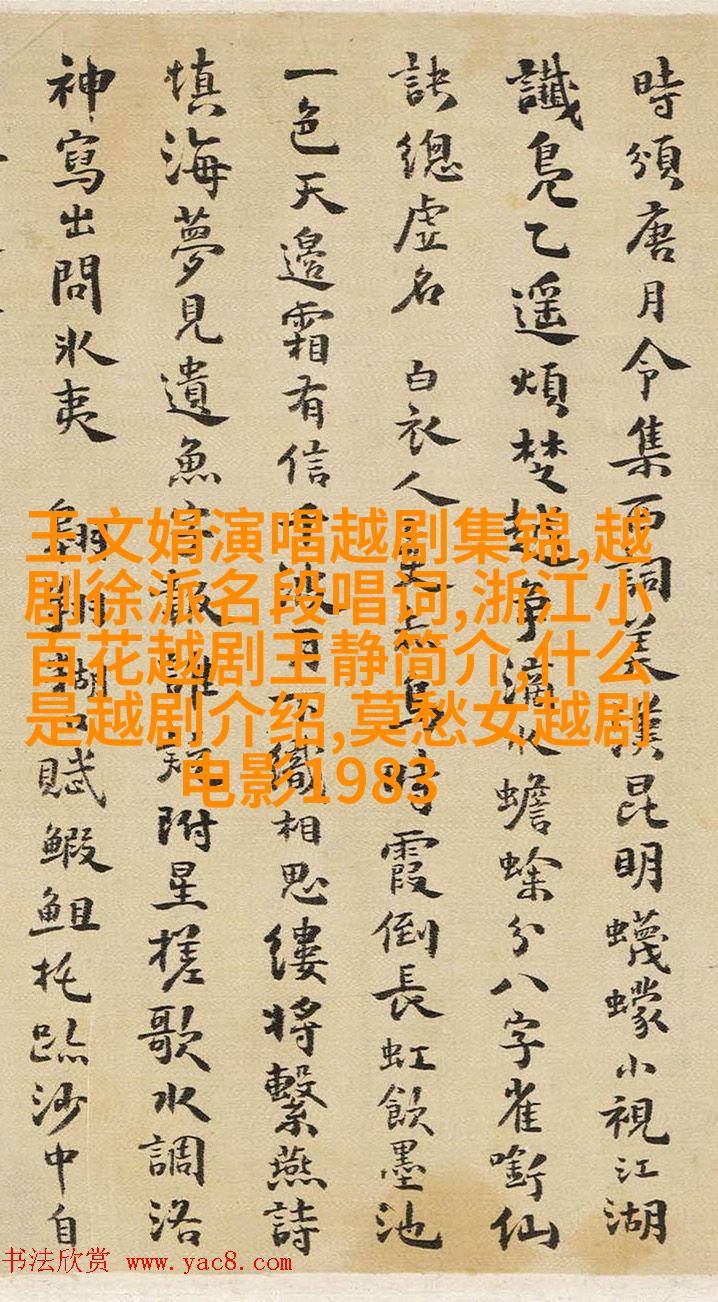 時頒唐月令集百詞美漢昆明蠛蠓小視江湖
讖鳧乙遥煩楚越爭滴次蟾蜍分八字雀銜仙
訣總虛名 白衣人 烏時霞倒長虹飲墨池
一色天邊霜有信 織相思縷將繫燕詩
填海夢見遺魚 附星槎歌水調洛
神寫出問冰夷 翱翔 賦鰕鉏托跡沙中自
王文娟演唱越剧集锦,越
剧徐派名段唱词,浙江小
百花越剧王静简介,什么
是越剧介绍,莫愁女越剧
电影1983
书法欣赏 www.yac8.com